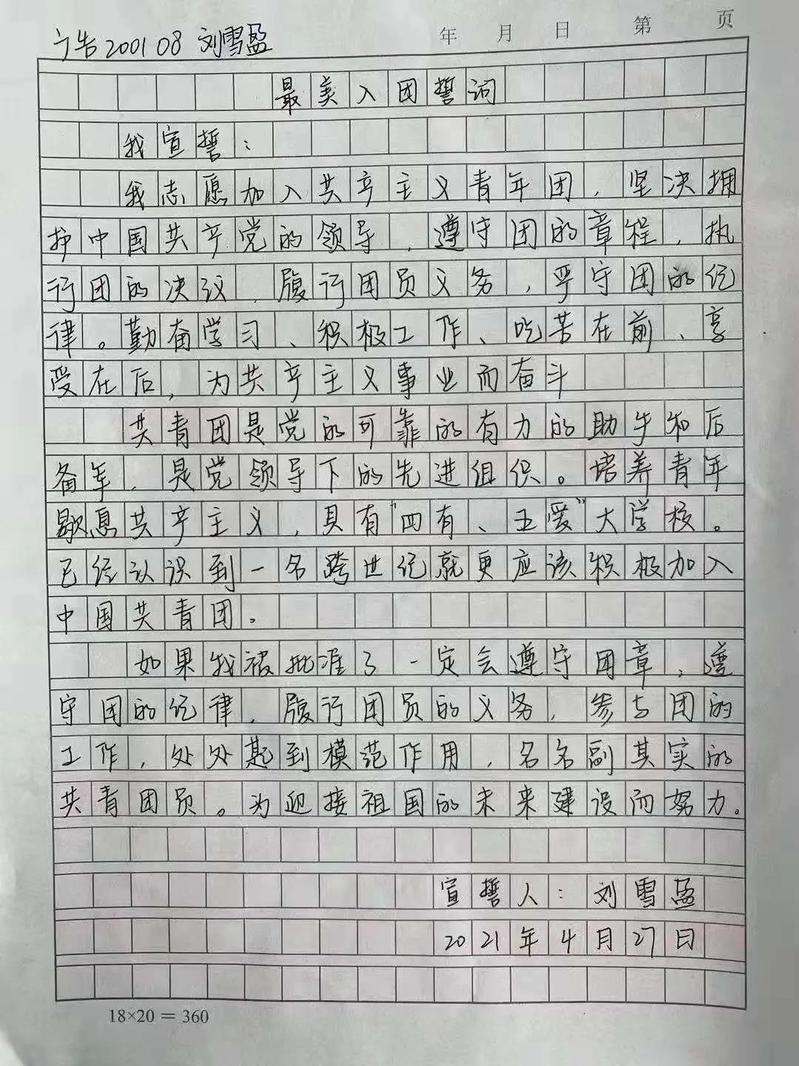 广告200108 刘雪盈
年 月 日 第 页
最美入团誓词
我宣誓：
我志愿加入共产主义青年团，坚决拥
护中国共产党的领导，遵守团的章程，执
行团的决议，履行团员义务，严守团的纪
律。勤奋学习、积极工作、吃苦在前、享
受在后，为共产主义事业而奋斗
共青团是党的可靠的有力的助手和后
备军，是党领导下的先进组织。培养青年
歇息共产主义，具有“四有、五爱”大学校。
已经认识到一名跨世纪就更应该积极加入
中国共青团。
如果我被批准了一定会遵守团章，遵
守团的纪律，履行团员的义务，参与团的
工作，处处起到模范作用，名名副其实的
共青团员。为迎接祖国的未来建设而努力。
宣誓人：刘雪盈
2021年4月27日
18×20＝360